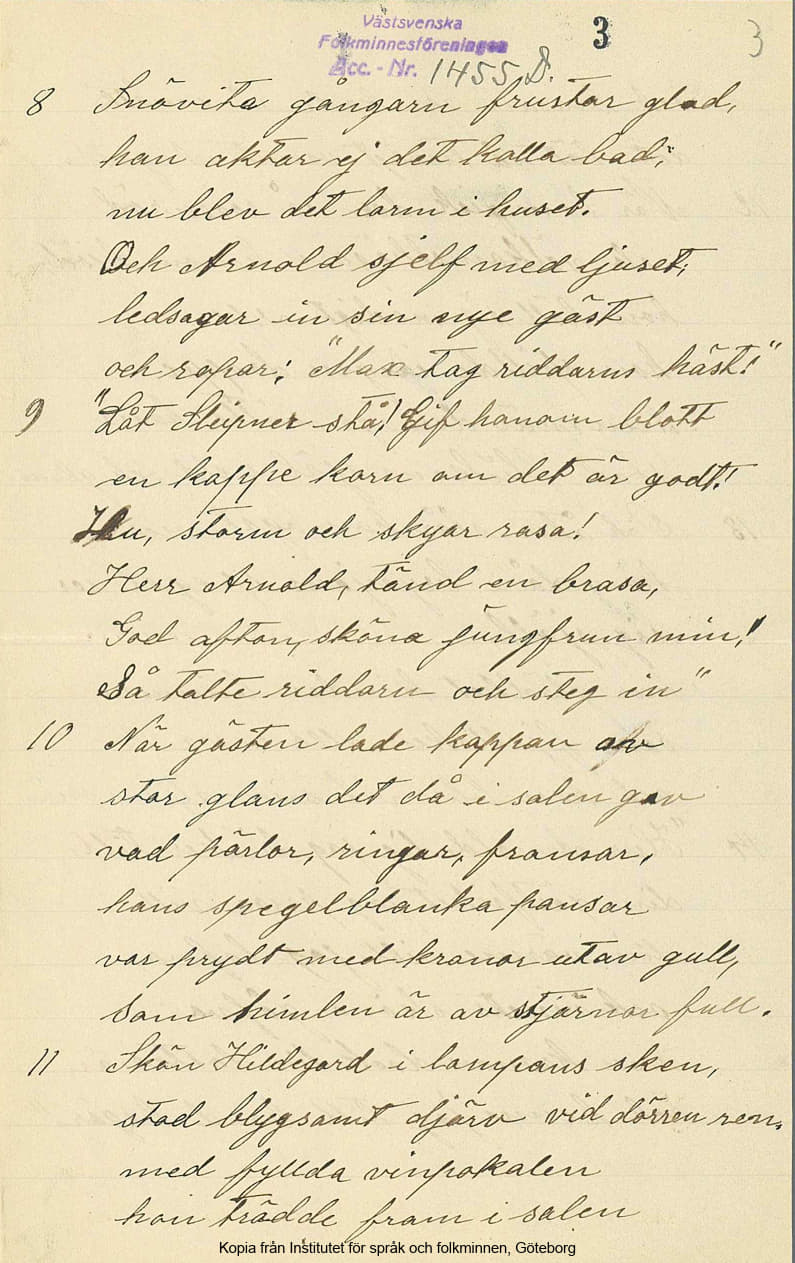 Västsvenska
Folkminnesföreningen
Acc. - Nr. 1455 D.
3
3
8 Snövita gångarn frustar glad,
han aktar ej det kalla bad;
nu blev det larm i huset.
Och Arnold sjelf med ljuset;
ledsagar in sin nye gäst
och ropar; "Max tag riddarns häst!"
9 "Låt Sleipner stå! Gif honom blott
en kappe korn om det är godt!
Hu, storm och skyar rasa!
Herr Arnold, tänd en brasa,
God afton, sköna jungfrun min!
Så talte riddarn och steg in"
10 När gästen lade kappan av
stor glans det då i salen gav
vad pärlor, ringar, fransar,
hans spegelblanka pansar
var prydt med kronor utav gull,
som himlen är av stjärnor full.
11 Skön Hildegard i lampans sken,
stod blygsamt djärv vid dörren ren.
med fyllda vinpokalen
hon trädde fram i salen
Kopia från Institutet för språk och folkminnen, Göteborg